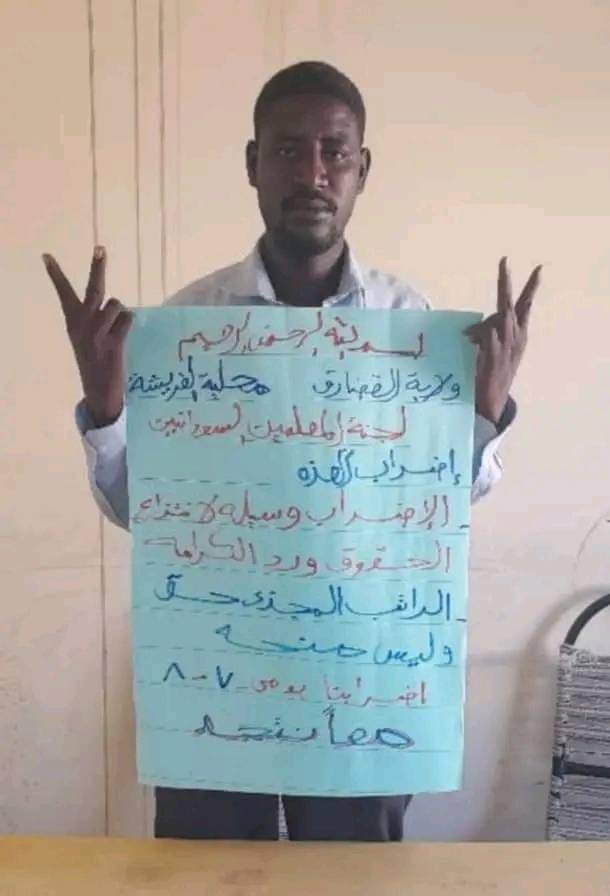 بسم الله الرحمن الرحيم
ولاية القضارف محلية القريشة
لجنة المعلمين السودانيين
إضراب العزة
الإضراب وسيلة لانتزاع
الحقوق ورد الكرامة
الراتب المجزى حق
وليس منحه
اضرابنا يومى ٧-٨
معاً ننتصر